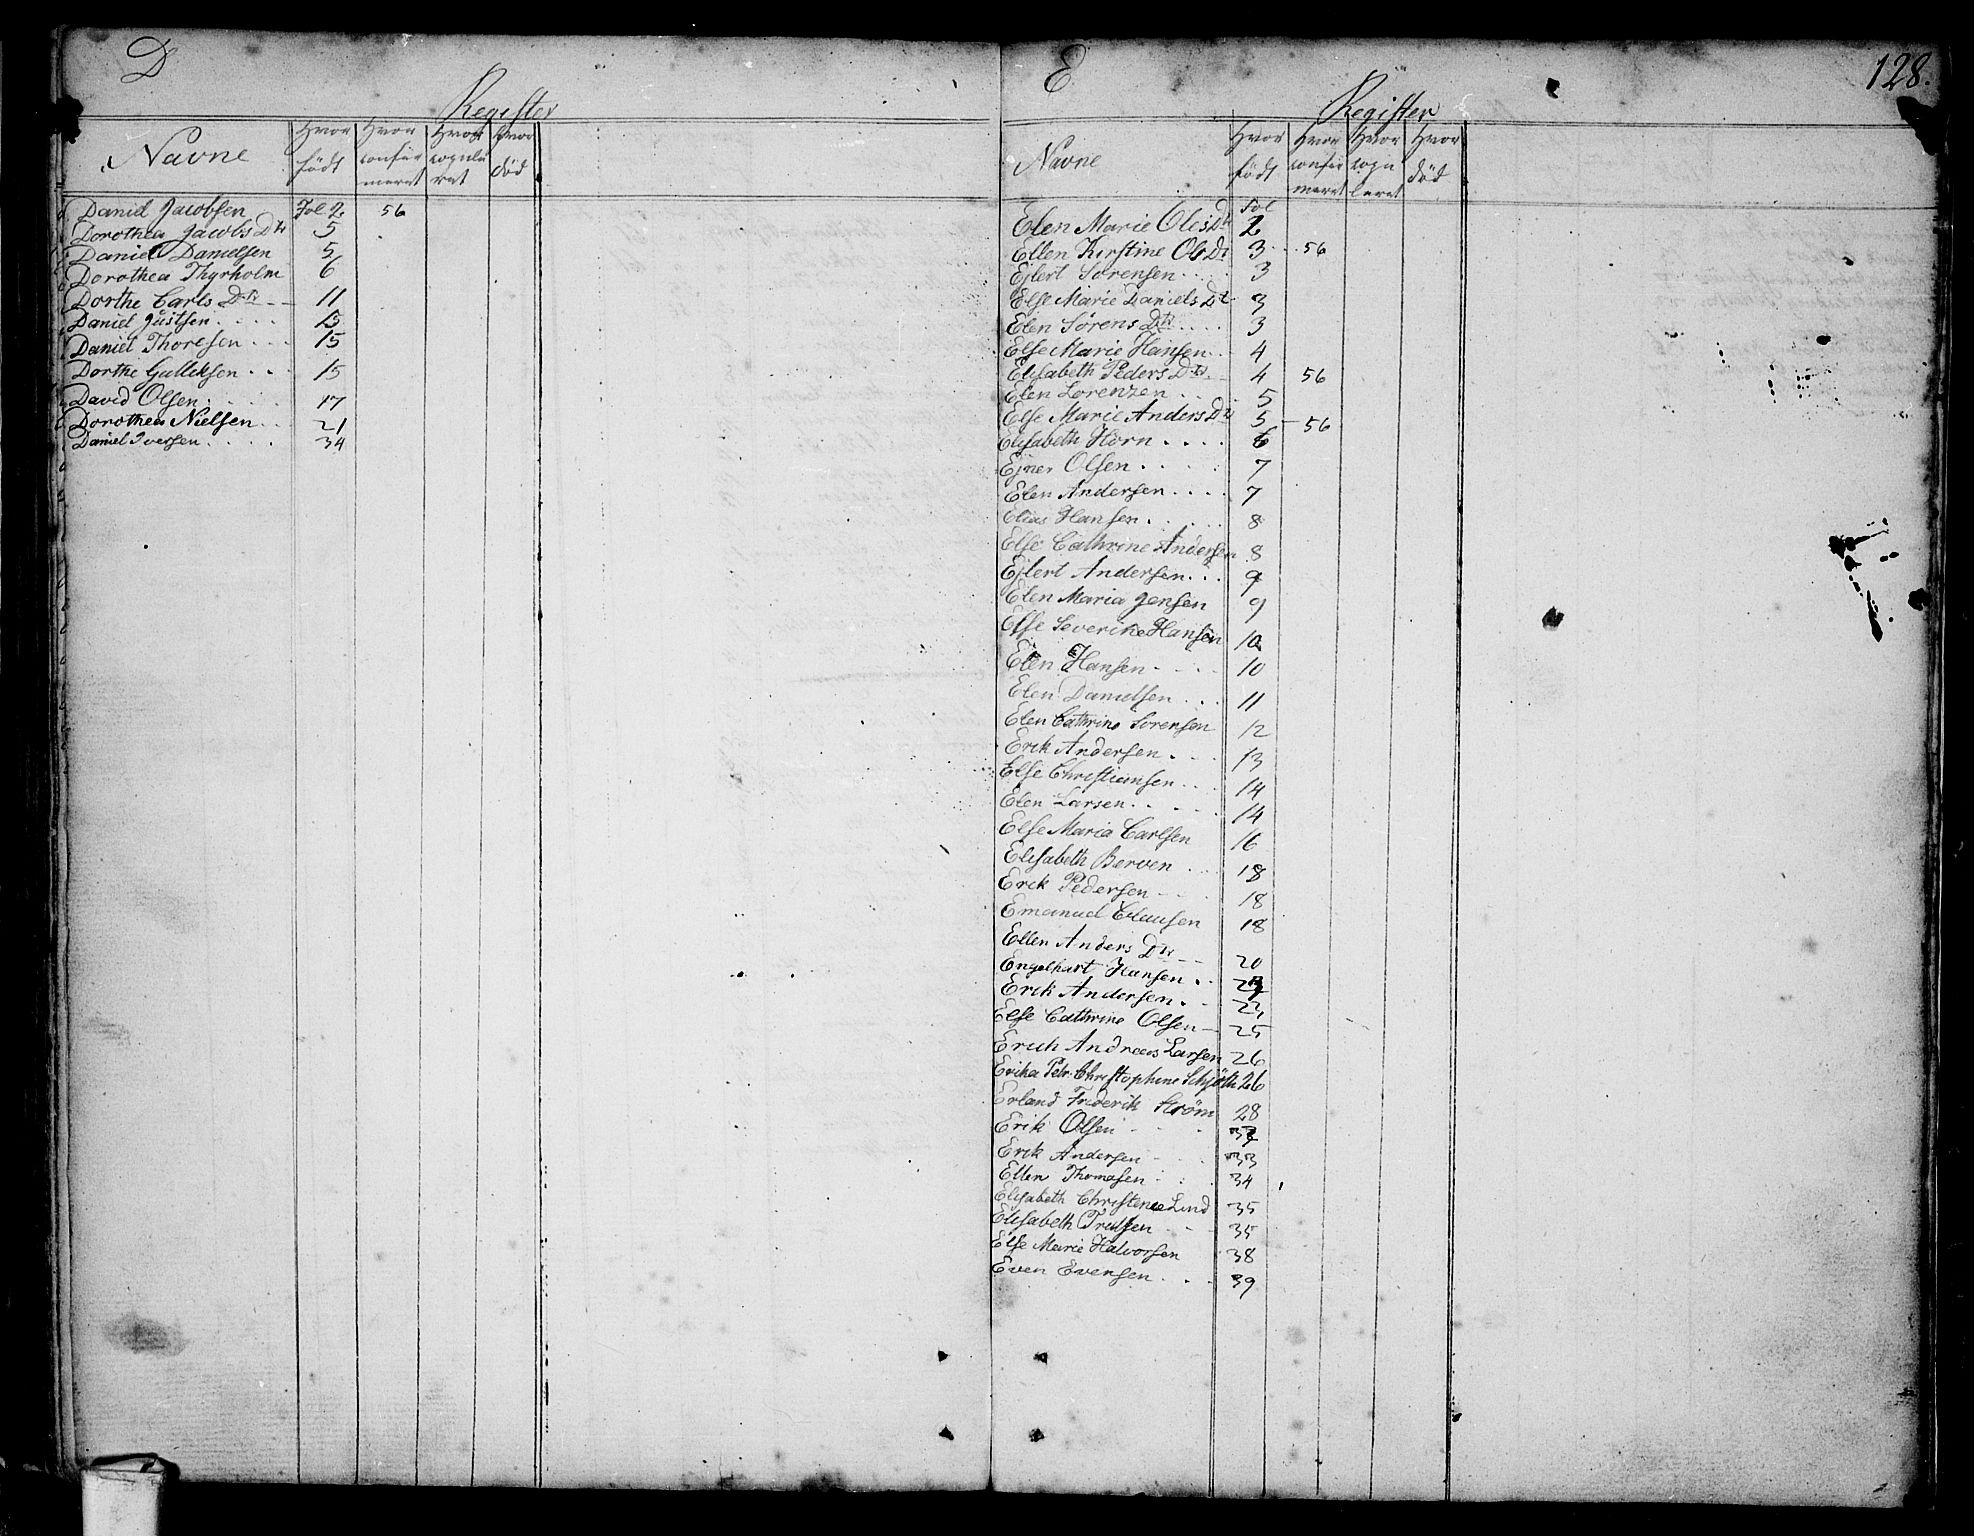 D
Register
Navne Hvor født Hvor confirmeret Hvor copuleret Hvor død
Daniel Jacobsen Fol 2 56
Dorothea Jacobs Dtr 5
Daniel Danielsen 5
Dorothea Thyrholm 6
Dorthe Carls Dtr 11
Daniel Justsen 15
Daniel Thoresen 15
Dorthe Gulliksen 15
David Olsen 17
Dorothea Nielsen 21
Daniel Iversen 34
E
128.
Register
Navne Hvor født Hvor confirmeret Hvor copuleret Hvor død
Fol
Elen Marie Ols Dtr 2
Ellen Kirstine Ols Dtr 3 56
Ejlert Sörensen 3
Else Marie Daniels Dtr 3
Elen Sörens Dtr 3
Else Marie Hansen 4
Elisabeth Peders Dtr 4 56
Elen Lorenzen 5
Else Marie Anders Dtr 5 56
Elisabeth Horn 6
Ejner Olsen 7
Elen Andersen 7
Elias Hansen 8
Else Cathrine Andersen 8
Ejlert Andersen 9
Elen Maria Jensen 9
Else Severine Hansen 10
Elen Hansen 10
Elen Danielsen 11
Elen Cathrine Sorensen 12
Erik Andersen 13
Else Christiansen 14
Elen Larsen 14
Else Maria Carlsen 16
Elisabeth Berven 18
Erik Pedersen 18
Emanuel Clausen 18
Ellen Anders Dtr 20
Engelhart Hansen
Erik Andersen 23
Else Cathrine Olsen 25
Erich Andreas Larsen 26
Erika Petr. Christophine Schjöth 26
Erland Friderik Ström 28
Erik Olsen 32
Erik Andersen 33
Ellen Thomesen 34
Elisabeth Christence Lind 35
Elisabeth Trulsen 35
Else Marie Halvorsen 38
Even Evensen 39